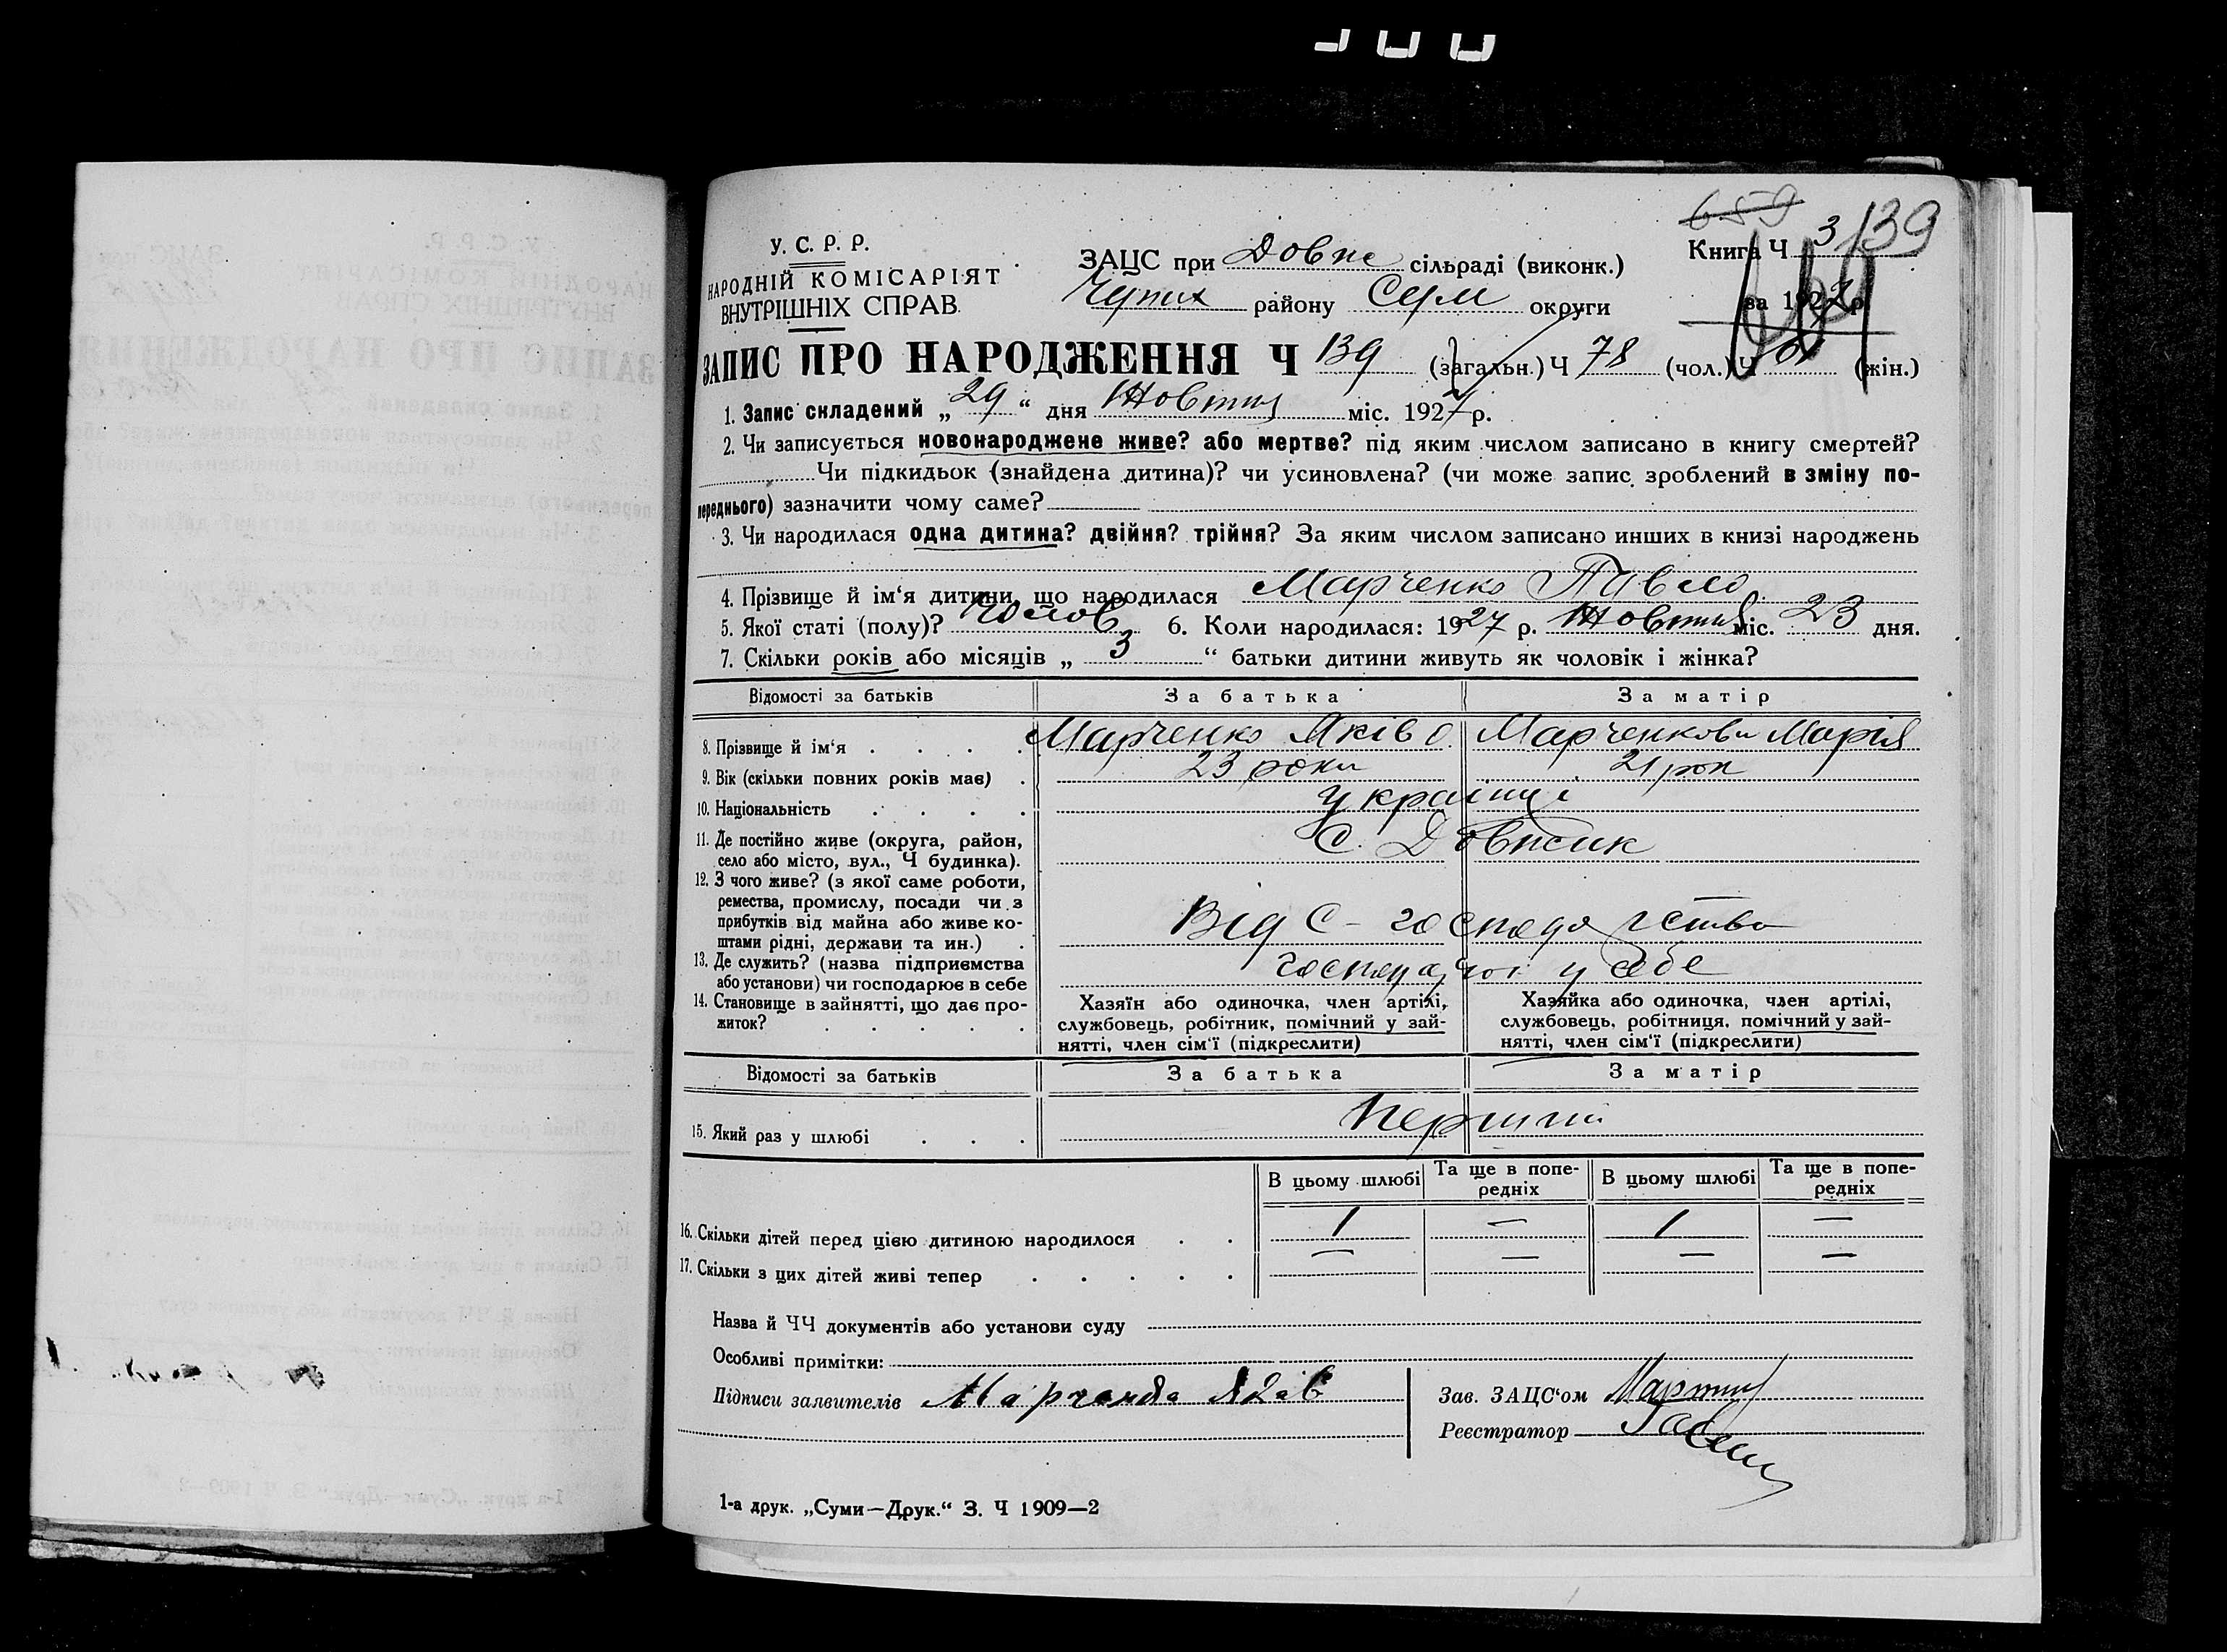 659
139
У. С. Р. Р.
НАРОДНІЙ КОМІСАРІЯТ
ВНУТРІШНІХ СПРАВ.
ЗАЦС при Довже сільраді (виконк.)
Чупих району Сум округи
Книга Ч 3
за 1927 р.
ЗАПИС ПРО НАРОДЖЕННЯ Ч 139 (загальн.) Ч 78 (чол.) Ч (жін.)
1. Запис складений „ 29 “ дня Жовтня міс. 1927 р.
2. Чи записується новонароджене живе? або мертве? під яким числом записано в книгу смертей?
Чи підкидьок (знайдена дитина)? чи усиновлена? (чи може запис зроблений в зміну по-
переднього) зазначити чому саме?
3. Чи народилася одна дитина? двійня? трійня? За яким числом записано инших в книзі народжень
4. Прізвище й ім'я дитини, що народилася Марченко Павло
5. Якої статі (полу)? Чолов 6. Коли народилася: 1927 р. Жовтня міс. 23 дня.
7. Скільки років або місяців „ 3 “ батьки дитини живуть як чоловік і жінка?
Відомості за батьків За батька За матір
8. Прізвище й ім'я . . . . Марченко Яків О. Марченкова Марія
9. Вік (скільки повних років має) . 23 роки 21 рок
10. Національність . . . . українці
11. Де постійно живе (округа, район,
село або місто, вул., Ч будинка). С. Довжик
12. З чого живе? (з якої саме роботи,
ремества, промислу, посади чи з
прибутків від майна або живе ко-
штами рідні, держави та ин.) . Від С - господарства
13. Де служить? (назва підприємства
або установи) чи господарює в себе у себе
14. Становище в зайнятті, що дає про-
житок? . . . . .
Хазяїн або одиночка, член артілі,
службовець, робітник, помічний у зай-
нятті, член сім'ї (підкреслити)
Хазяйка або одиночка, член артілі,
службовець, робітниця, помічний у зай-
нятті, член сім'ї (підкреслиги)
Відомості за батьків За батька За матір
15. Який раз у шлюбі . . . Перший
В цьому шлюбі Та ще в попе-редніх В цьому шлюбі Та ще в попе-редніх
16. Скільки дітей перед цією дитиною народилося . . 1 — 1 —
17. Скільки з цих дітей живі тепер . . . . . — — — —
Назва й ЧЧ документів або установи суду
Особливі примітки:
Підписи заявителів Марченко
Зав. ЗАЦС'ом
Реєстратор
1-а друк. „Суми—Друк.“ З. Ч 1909—2